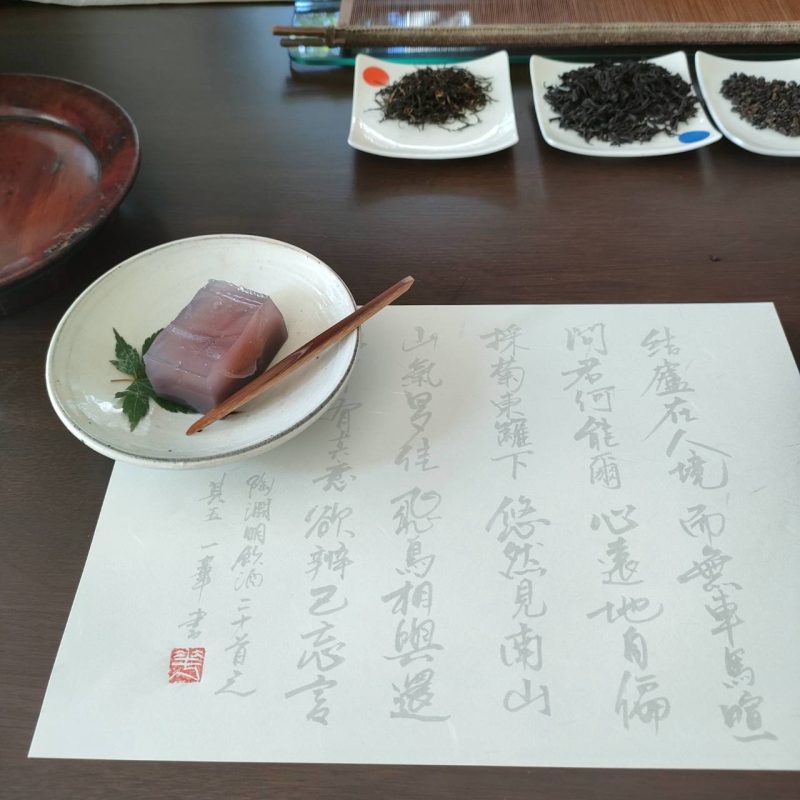 結廬在人境 而無車馬喧
問君何能爾 心遠地自偏
採菊東籬下 悠然見南山
山氣日夕佳 飛鳥相與還
有真意 欲辨已忘言
陶淵明飲酒二十首之
其五 一華書